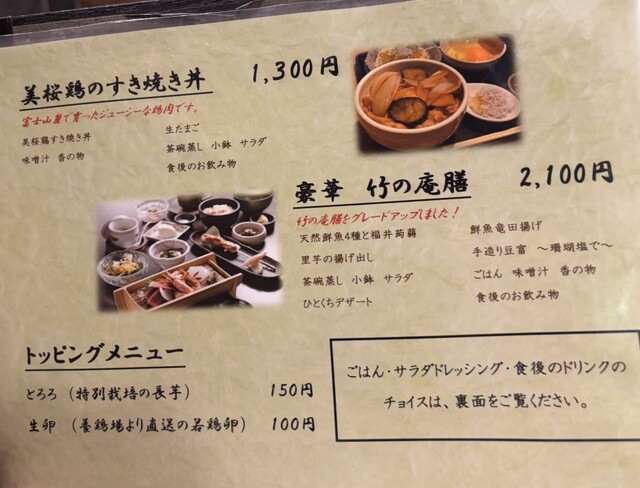 美桜鶏のすき焼き丼 1,300円
富士山麓で育ったジューシーな鶏肉です。
美桜鶏すき焼き丼 生たまご
味噌汁 香の物 茶碗蒸し 小鉢 サラダ
食後のお飲み物
豪華 竹の庵膳 2,100円
竹の庵膳をグレードアップしました！
天然鮮魚4種と福井蒟蒻 鮮魚竜田揚げ
里芋の揚げ出し 手造り豆富 ～珊瑚塩で～
茶碗蒸し 小鉢 サラダ ごはん 味噌汁 香の物
ひとくちデザート 食後のお飲み物
トッピングメニュー
とろろ（特別栽培の長芋） 150円
生卵（養鶏場より直送の若鶏卵） 100円
ごはん・サラダドレッシング・食後のドリンクの
チョイスは、裏面をご覧ください。